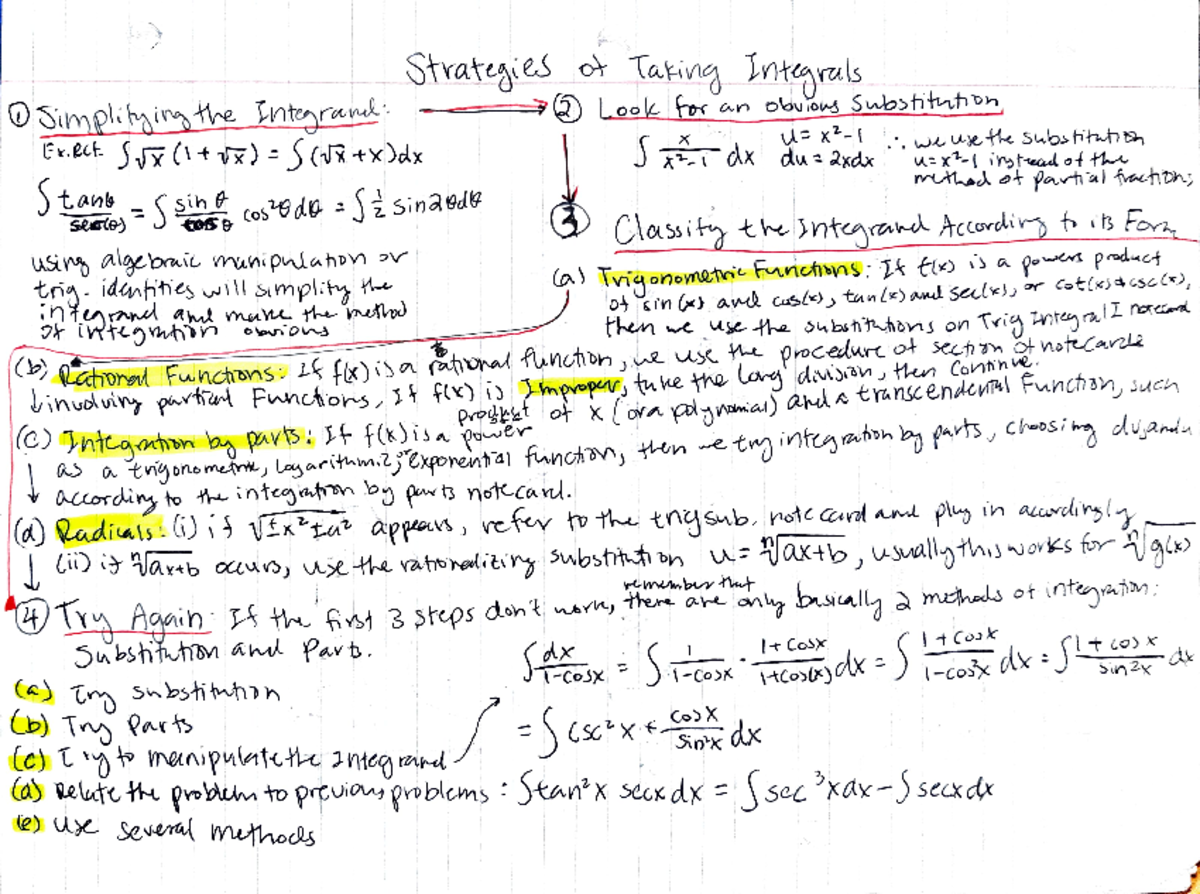 Strategies of Taking Integrals
① Simplifying the Integrand:
Ex. ∫√x (1+√x) = ∫(√x + x)dx
∫ tanθ/sec²(θ) = ∫ sinθ/cosθ cos²θ dθ = ∫ ½ sin2θdθ
using algebraic manipulation or
trig. identities will simplify the
integrand and make the method
of integration obvious
② Look for an obvious Substitution
∫ x/(x²-1) dx u = x²-1 du = 2xdx ∴ we use the substitution
u=x²-1 instead of the
method of partial fractions
③ Classify the Integrand According to its Form
(a) Trigonometric Functions: If f(x) is a powers product
of sin(x) and cos(x), tan(x) and sec(x), or cot(x) & csc(x),
then we use the substitutions on Trig Integral I notecard
(b) Rational Functions: If f(x) is a rational function, we use the procedure of section of notecards
involving partial Functions, If f(x) is Improper, take the long division, then continue.
(c) Integration by parts: If f(x) is a power product of x (or a polynomial) and a transcendental Function, such
as a trigonometric, logarithmic, exponential function, then we try integration by parts, choosing dv and u
according to the integration by parts notecard.
(d) Radicals: (i) if √±x²±a² appears, refer to the trig sub. note card and plug in accordingly
(ii) if ⁿ√ax+b occurs, use the rationalizing substitution u = ⁿ√ax+b, usually this works for ⁿ√g(x)
④ Try Again: If the first 3 steps don't work, remember that there are only basically 2 methods of integration:
Substitution and Parts.
(a) Try substitution
(b) Try Parts
(c) Try to manipulate the Integrand
∫ dx/(1-cosx) = ∫ 1/(1-cosx) · (1+cosx)/(1+cos(x)) dx = ∫ (1+cosx)/(1-cos²x) dx = ∫ (1+cosx)/sin²x dx
= ∫ csc²x + cosx/sin²x dx
(d) Relate the problem to previous problems : ∫tan²x secx dx = ∫sec³xdx - ∫secx dx
(e) Use several methods